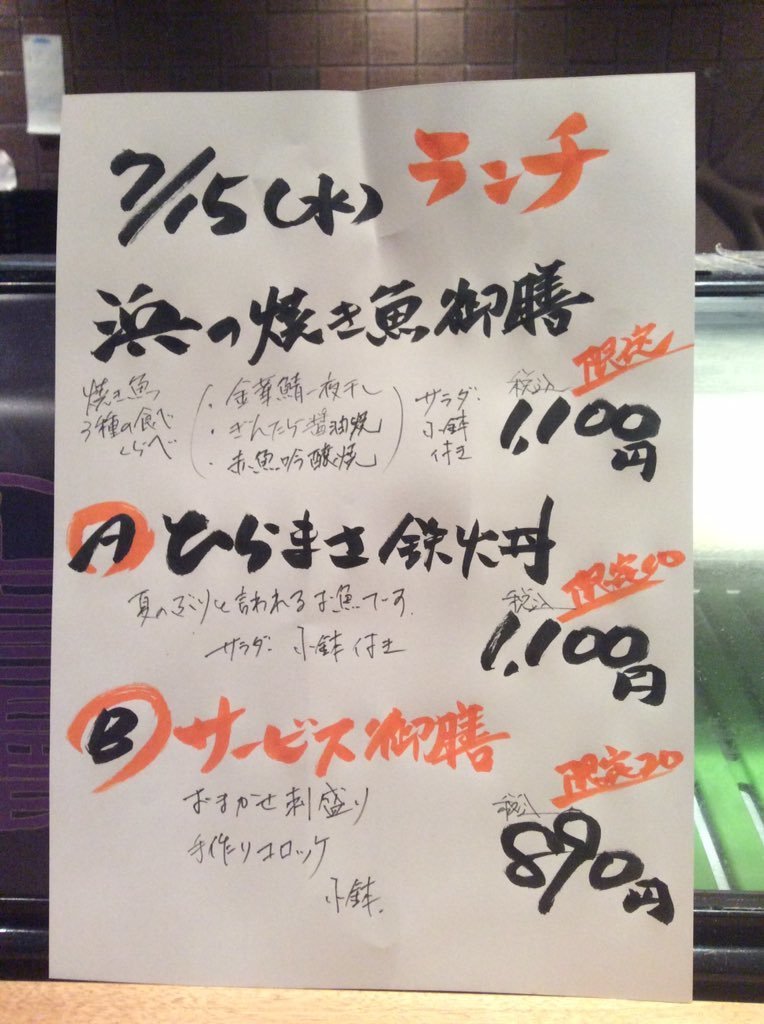 7/15(水) ランチ
浜の焼き魚御膳
限定
焼き魚
3種の食べ
くらべ
・金華鯖一夜干し
・ぎんだら醤油焼
・赤魚吟醸焼
サラダ・
小鉢
付き
税込
1,100円
A ひらまさ鉄火丼
限定40
夏のぶりと言われるお魚です。
サラダ・小鉢付き
税込
1,100円
B サービス御膳
限定20
おまかせ刺盛り
手作りコロッケ
小鉢
税込
890円